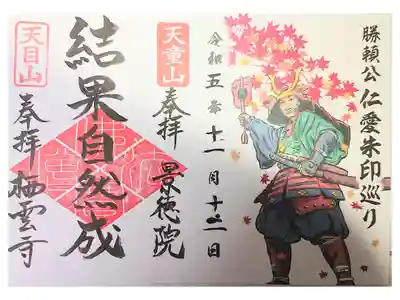 勝頼公 仁愛朱印巡り
令和五年十一月十二日
天童山
奉拝 景徳院
結果自然成
天目山
奉拝 栖雲寺